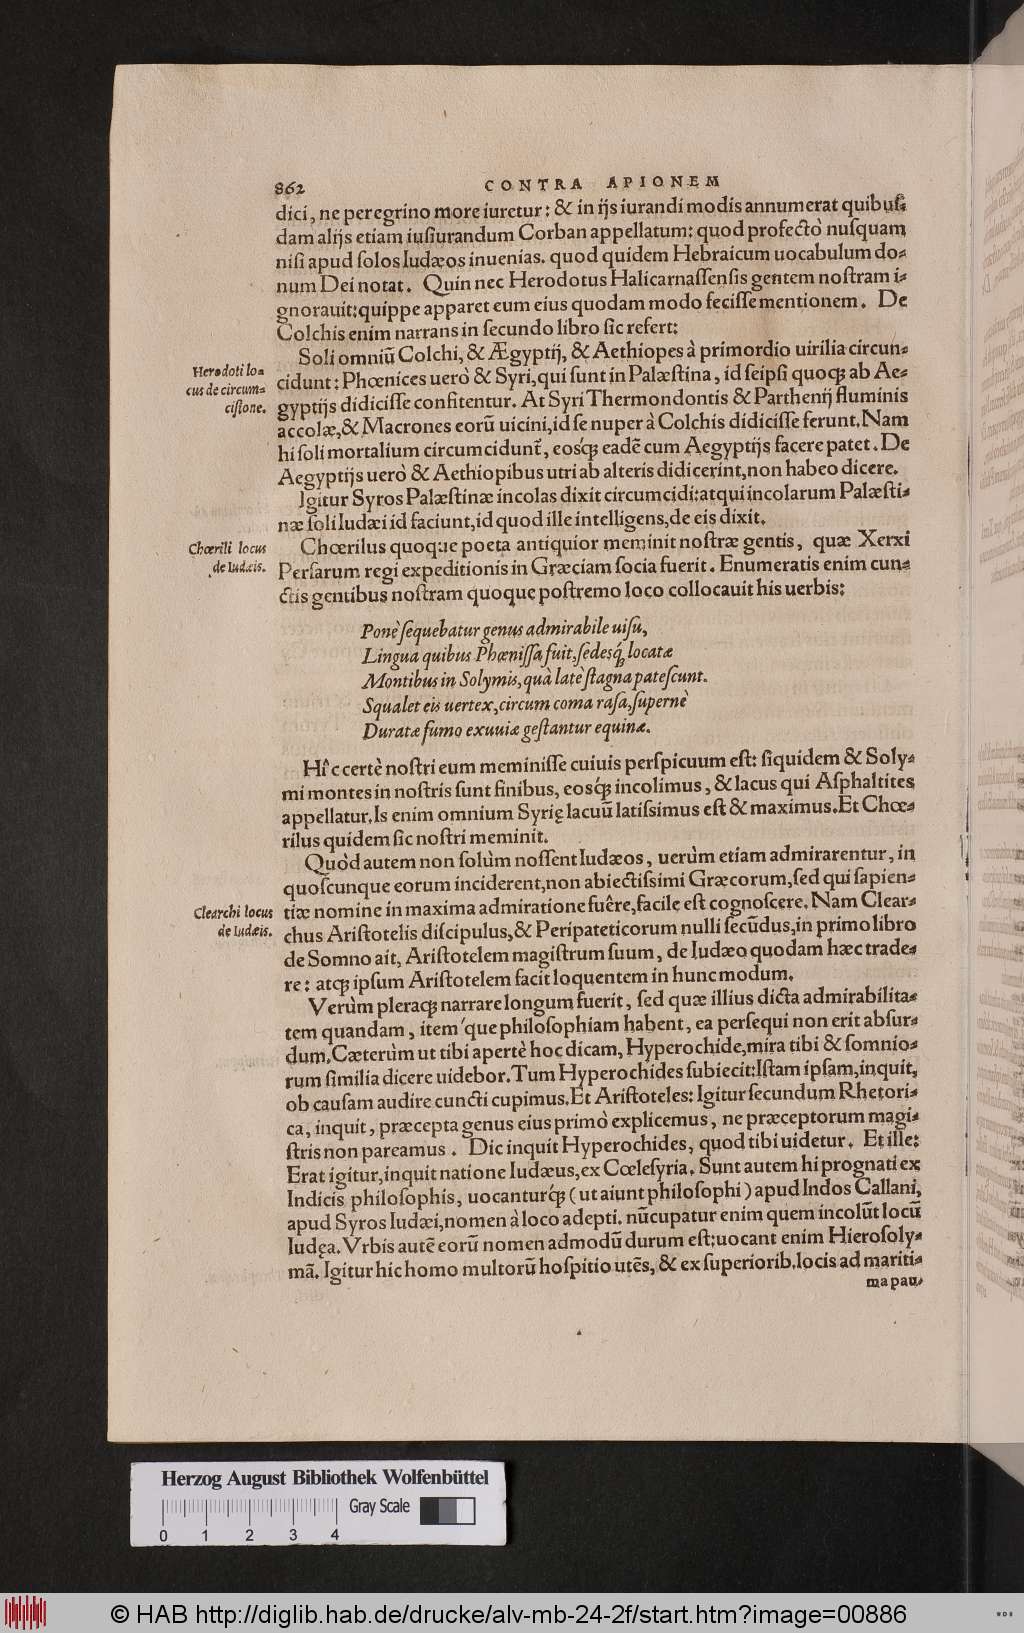 862 CONTRA APIONEM
dici, ne peregrino more iuretur: & in ijs iurandi modis annumerat quibuſ-
dam alijs etiam iuſiurandum Corban appellatum: quod profectò nuſquam
niſi apud ſolos Iudæos inuenias. quod quidem Hebraicum uocabulum do-
num Dei notat. Quin nec Herodotus Halicarnaſſenſis gentem noſtram i-
gnorauit: quippe apparet eum eius quodam modo feciſſe mentionem. De
Colchis enim narrans in ſecundo libro ſic refert:
Soli omniū Colchi, & Ægyptij, & Aethiopes à primordio uirilia circun-
Herodoti lo-
cus de circum-
ciſione.
cidunt: Phœnices uerò & Syri, qui ſunt in Palæſtina, id ſeipſi quoqꝫ ab Ae-
gyptijs didiciſſe confitentur. At Syri Thermondontis & Parthenij fluminis
accolæ, & Macrones eorū uicini, id ſe nuper à Colchis didiciſſe ferunt. Nam
hi ſoli mortalium circumcidunt̃, eosq́ꝫ eadē cum Aegyptijs facere patet. De
Aegyptijs uerò & Aethiopibus utri ab alteris didicerint, non habeo dicere.
Igitur Syros Palæſtinæ incolas dixit circumcidi: atqui incolarum Palæſti-
næ ſoli Iudæi id faciunt, id quod ille intelligens, de eis dixit.
Chœrili locus
de Iudæis.
Chœrilus quoque poeta antiquior meminit noſtræ gentis, quæ Xerxi
Perſarum regi expeditionis in Græciam ſocia fuerit. Enumeratis enim cun-
ctis gentibus noſtram quoque poſtremo loco collocauit his uerbis:
Ponè ſequebatur genus admirabile uiſu,
Lingua quibus Phœniſſa fuit, ſedesq́ꝫ locatæ
Montibus in Solymis, quà latè ſtagna pateſcunt.
Squalet eis uertex, circum coma raſa, ſupernè
Duratæ fumo exuuiæ geſtantur equinæ.
Hîc certè noſtri eum meminiſſe cuiuis perſpicuum eſt: ſiquidem & Soly-
mi montes in noſtris ſunt finibus, eosq́ꝫ incolimus, & lacus qui Aſphaltites
appellatur. Is enim omnium Syrię lacuū latiſsimus eſt & maximus. Et Chœ-
rilus quidem ſic noſtri meminit.
Quòd autem non ſolùm noſſent Iudæos, uerùm etiam admirarentur, in
quoſcunque eorum inciderent, non abiectiſsimi Græcorum, ſed qui ſapien-
Clearchi locus
de Iudæis.
tiæ nomine in maxima admiratione fuêre, facile eſt cognoſcere. Nam Clear-
chus Ariſtotelis diſcipulus, & Peripateticorum nulli ſecūdus, in primo libro
de Somno ait, Ariſtotelem magiſtrum ſuum, de Iudæo quodam hæc trade-
re: atqꝫ ipſum Ariſtotelem facit loquentem in hunc modum.
Verùm pleraqꝫ narrare longum fuerit, ſed quæ illius dicta admirabilita-
tem quandam, item´que philoſophiam habent, ea perſequi non erit abſur-
dum. Cæterùm ut tibi apertè hoc dicam, Hyperochide, mira tibi & ſomnio-
rum ſimilia dicere uidebor. Tum Hyperochides ſubiecit: Iſtam ipſam, inquit,
ob cauſam audire cuncti cupimus. Et Ariſtoteles: Igitur ſecundum Rhetori-
ca, inquit, præcepta genus eius primò explicemus, ne præceptorum magi-
ſtris non pareamus. Dic inquit Hyperochides, quod tibi uidetur. Et ille:
Erat igitur, inquit natione Iudæus, ex Cœleſyria. Sunt autem hi prognati ex
Indicis philoſophis, uocanturq́ꝫ (ut aiunt philoſophi) apud Indos Callani,
apud Syros Iudæi, nomen à loco adepti. nūcupatur enim quem incolūt locū
Iudęa. Vrbis autē eorū nomen admodū durum eſt: uocant enim Hieroſoly-
mā. Igitur hic homo multorū hoſpitio utēs, & ex ſuperiorib. locis ad mariti-
ma pau-
Herzog August Bibliothek Wolfenbüttel
Gray Scale
0 1 2 3 4
© HAB http://diglib.hab.de/drucke/alv-mb-24-2f/start.htm?image=00886